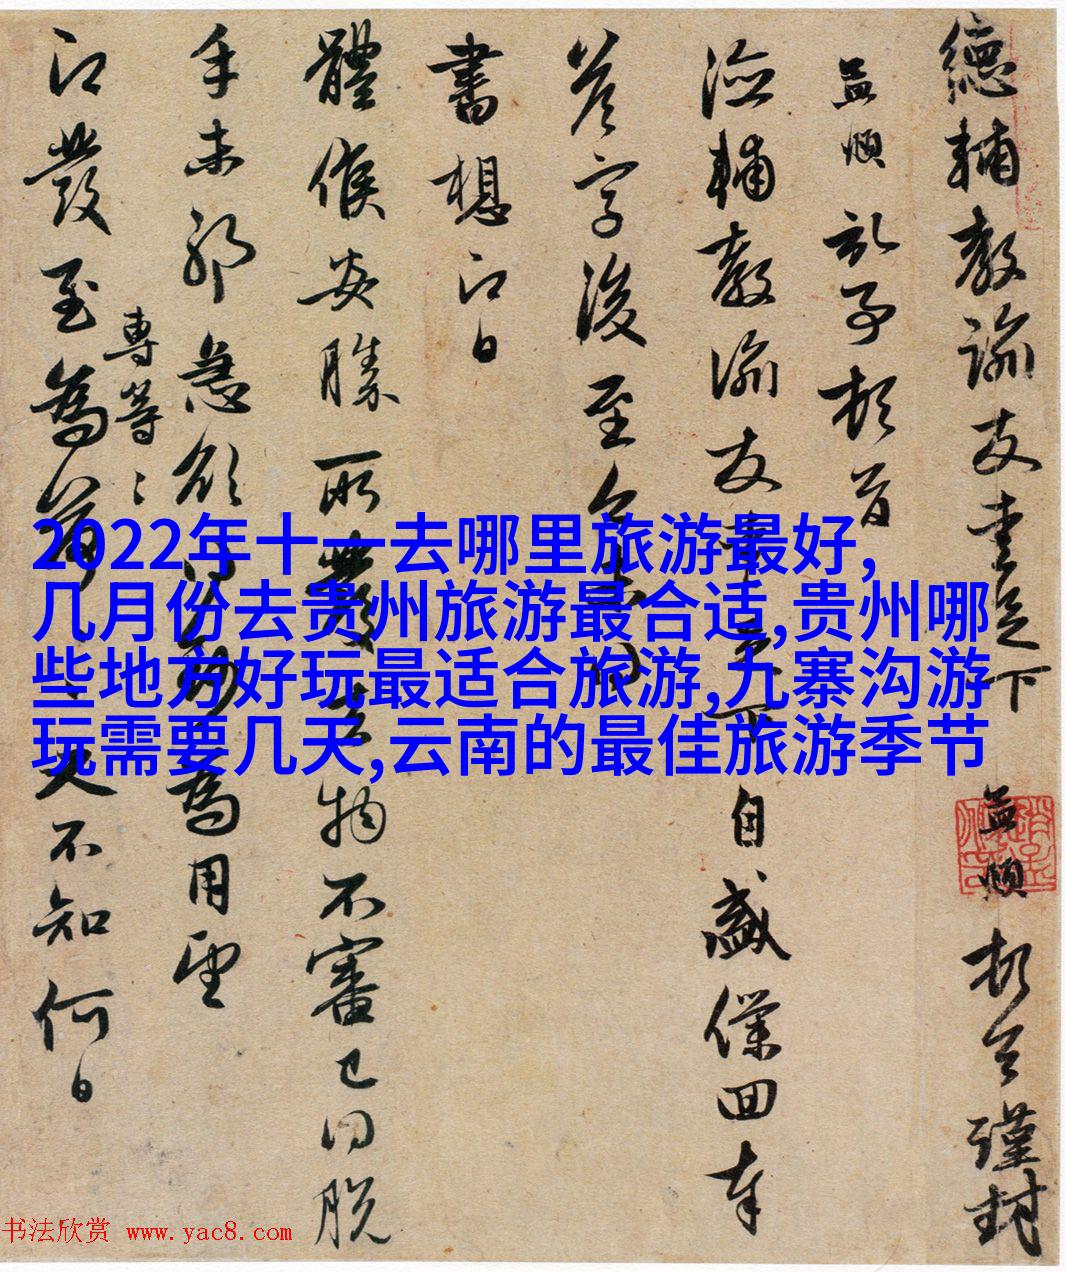 德輔教諭友妻足下 孟頫 頓首謹封
孟頫 頓首
德輔教諭友 自盛僕回奉
答字後至今
書想即日
體候安勝所發 物不審已得脫
手未耶急欲 為用望
即發至為 專等
不知何日
2022年十一去哪里旅游最好,
几月份去贵州旅游最合适,贵州哪
些地方好玩最适合旅游,九寨沟游
玩需要几天,云南的最佳旅游季节
书法欣赏 www.yac8.com